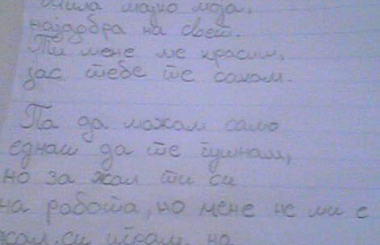 мила мајко моја,
најдобра на свет.
Ти мене ме красиш,
јас тебе те сакам.
Па да можам само
еднаш да те гушнам,
но за жал ти си
на работа, но мене не ми е
жал, си играм на